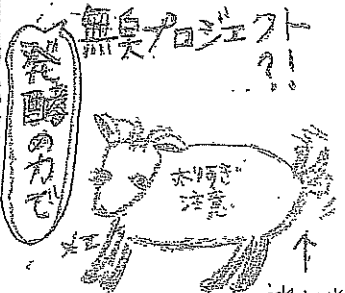 無臭プロジェクト
?!
発酵の力で
太りすぎ
注意